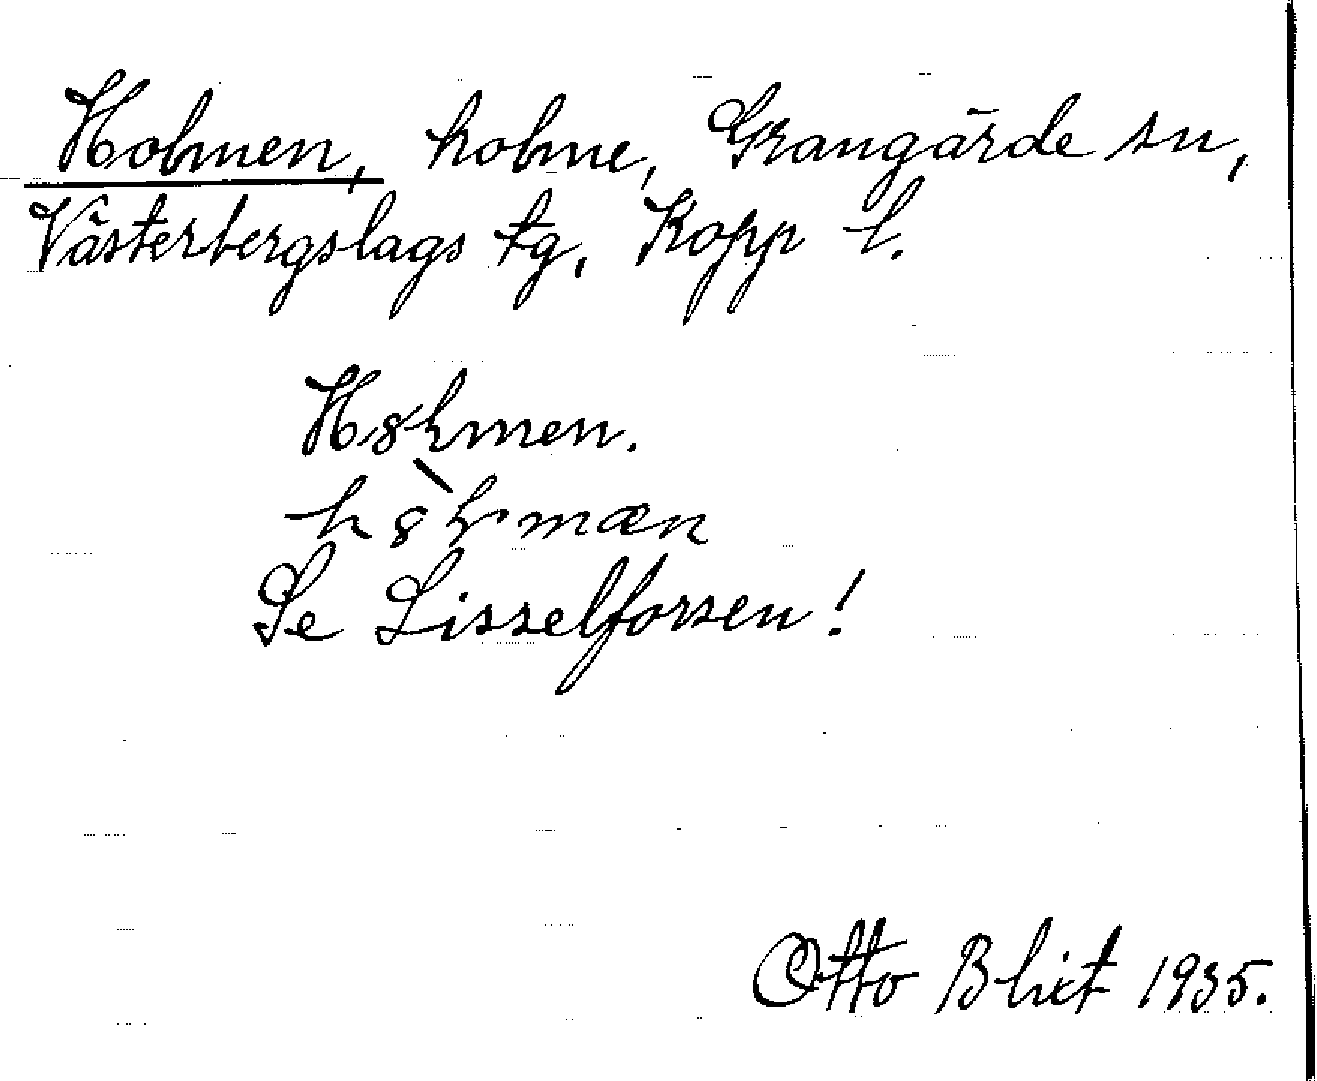 Holmen, holme, Grangärde sn,
Västerbergslags tg, Kopp l.
Se Lisselforsen!
Otto Blixt 1935.